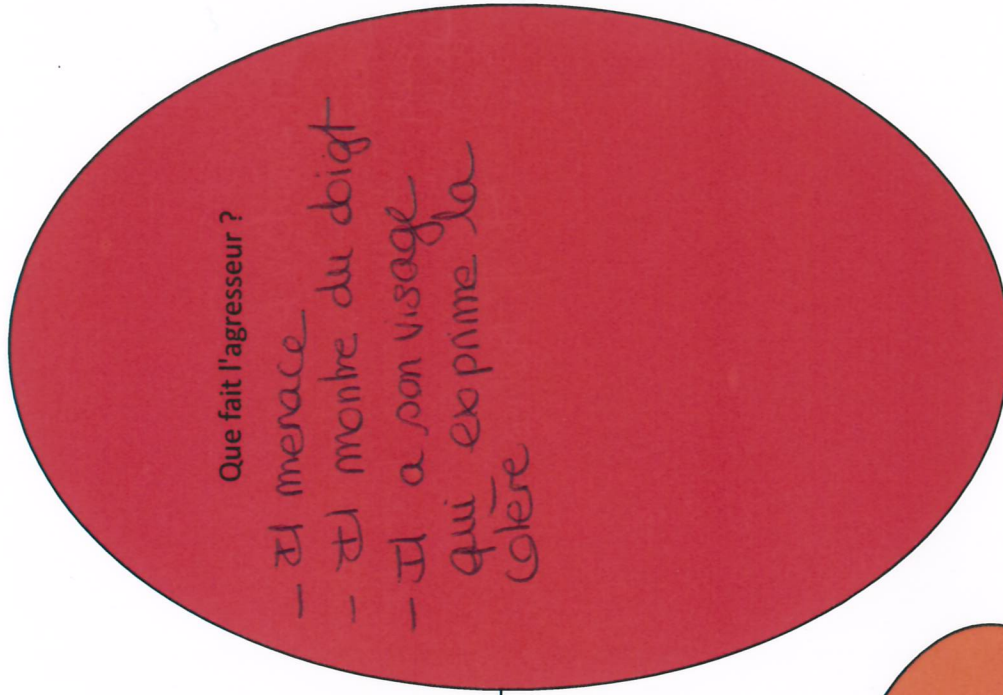 Que fait l'agresseur ?
- Il menace
- Il montre du doigt
- Il a son visage
qui exprime la
colère